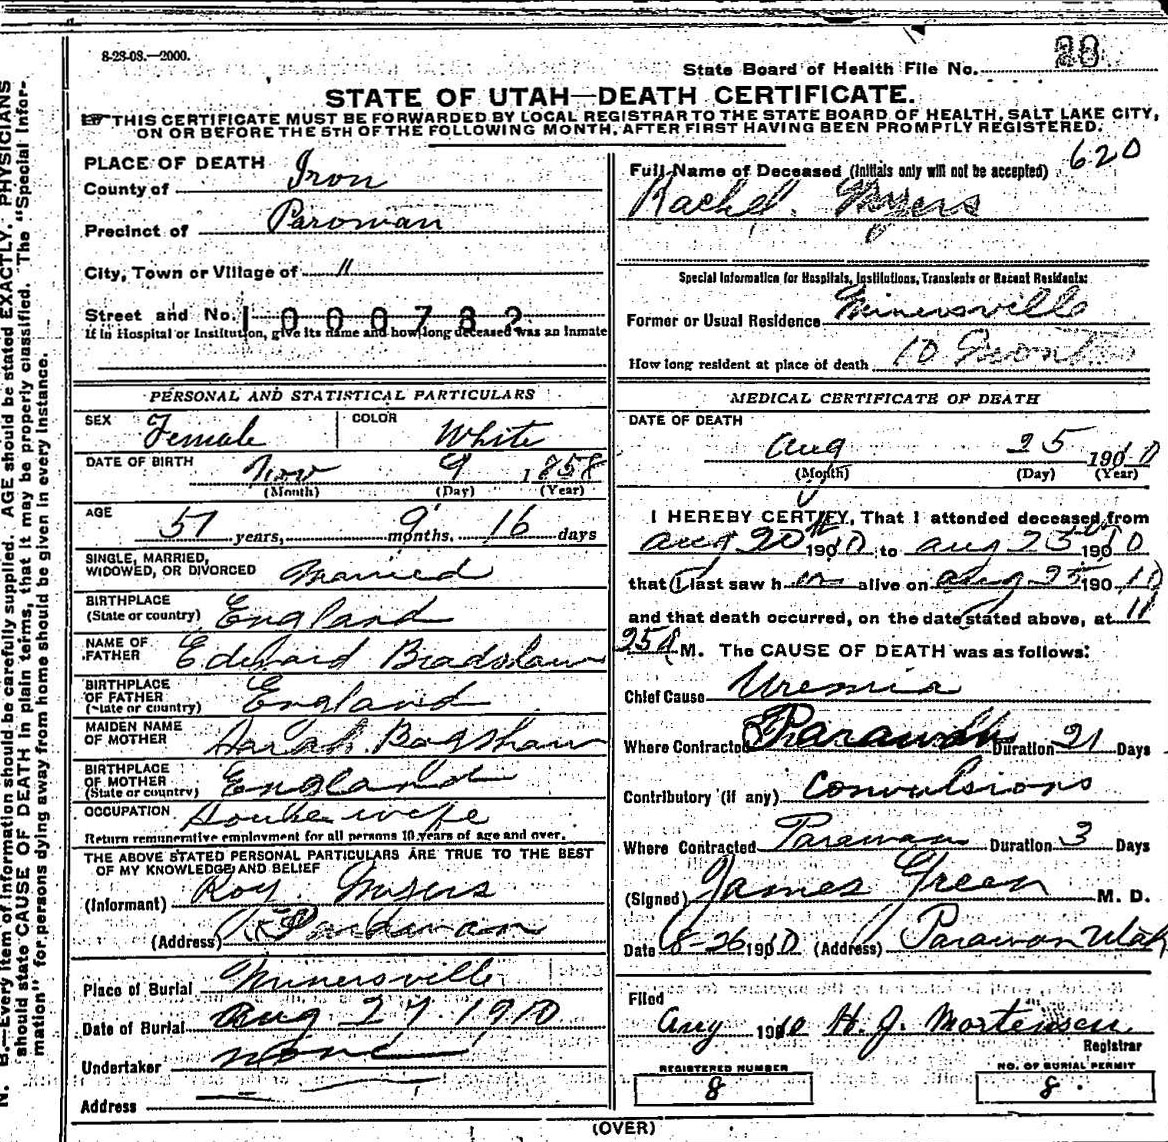 8-28-08.—2000.
State Board of Health File No. 20
STATE OF UTAH—DEATH CERTIFICATE.
THIS CERTIFICATE MUST BE FORWARDED BY LOCAL REGISTRAR TO THE STATE BOARD OF HEALTH, SALT LAKE CITY,
ON OR BEFORE THE 5TH OF THE FOLLOWING MONTH, AFTER FIRST HAVING BEEN PROMPTLY REGISTERED.
PLACE OF DEATH
County of Iron
Precinct of Parowan
City, Town or Village of "
Street and No. 1000782
If in Hospital or Institution, give its name and how long deceased was an Inmate
PERSONAL AND STATISTICAL PARTICULARS
SEX Female COLOR White
DATE OF BIRTH Nov 9 1858
(Month) (Day) (Year)
AGE 51 years, 9 months, 16 days
SINGLE, MARRIED,
WIDOWED, OR DIVORCED Married
BIRTHPLACE
(State or country) England
NAME OF
FATHER Edward Bradshaw
BIRTHPLACE
OF FATHER
(State or country) England
MAIDEN NAME
OF MOTHER Sarah Bagshaw
BIRTHPLACE
OF MOTHER
(State or country) England
OCCUPATION Housewife
Return remunerative employment for all persons 10 years of age and over.
THE ABOVE STATED PERSONAL PARTICULARS ARE TRUE TO THE BEST
OF MY KNOWLEDGE AND BELIEF
(Informant) Roy Myers
(Address) Parowan
Place of Burial Minersville
Date of Burial Aug 27. 1910
Undertaker none
Address
620
Full Name of Deceased (Initials only will not be accepted)
Rachel Myers
Special Information for Hospitals, Institutions, Transients or Recent Residents:
Former or Usual Residence Minersville
How long resident at place of death 10 Months
MEDICAL CERTIFICATE OF DEATH
DATE OF DEATH
Aug 25 1910
(Month) (Day) (Year)
I HEREBY CERTIFY, That I attended deceased from
Aug 20th 1910 to Aug 25 1910
that I last saw her alive on Aug 25 1910
and that death occurred, on the date stated above, at 11
25 A M. The CAUSE OF DEATH was as follows:
Chief Cause Uremia
Where Contracted Parawan Duration 21 Days
Contributory (if any) Convulsions
Where Contracted Parawan Duration 3 Days
(Signed) James Green M. D.
Date 8-26 1910 (Address) Parawon Utah
Filed
Aug 1910 H. J. Mortensen
Registrar
REGISTERED NUMBER
8
NO. OF BURIAL PERMIT
8.
(OVER)
N. B.—Every item of information should be carefully supplied. AGE should be stated EXACTLY. PHYSICIANS
should state CAUSE OF DEATH in plain terms, that it may be properly classified. The "Special Infor-
mation" for persons dying away from home should be given in every instance.